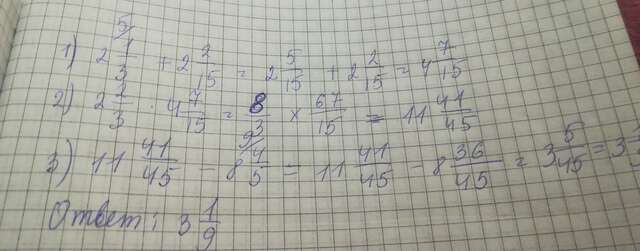 1) 2 1/3 + 2 2/15 = 2 5/15 + 2 2/15 = 4 7/15
2) 2 2/3 · 4 7/15 = 8/3 × 67/15 = 11 41/45
3) 11 41/45 - 8 4/5 = 11 41/45 - 8 36/45 = 3 5/45 = 3
Ответ: 3 1/9